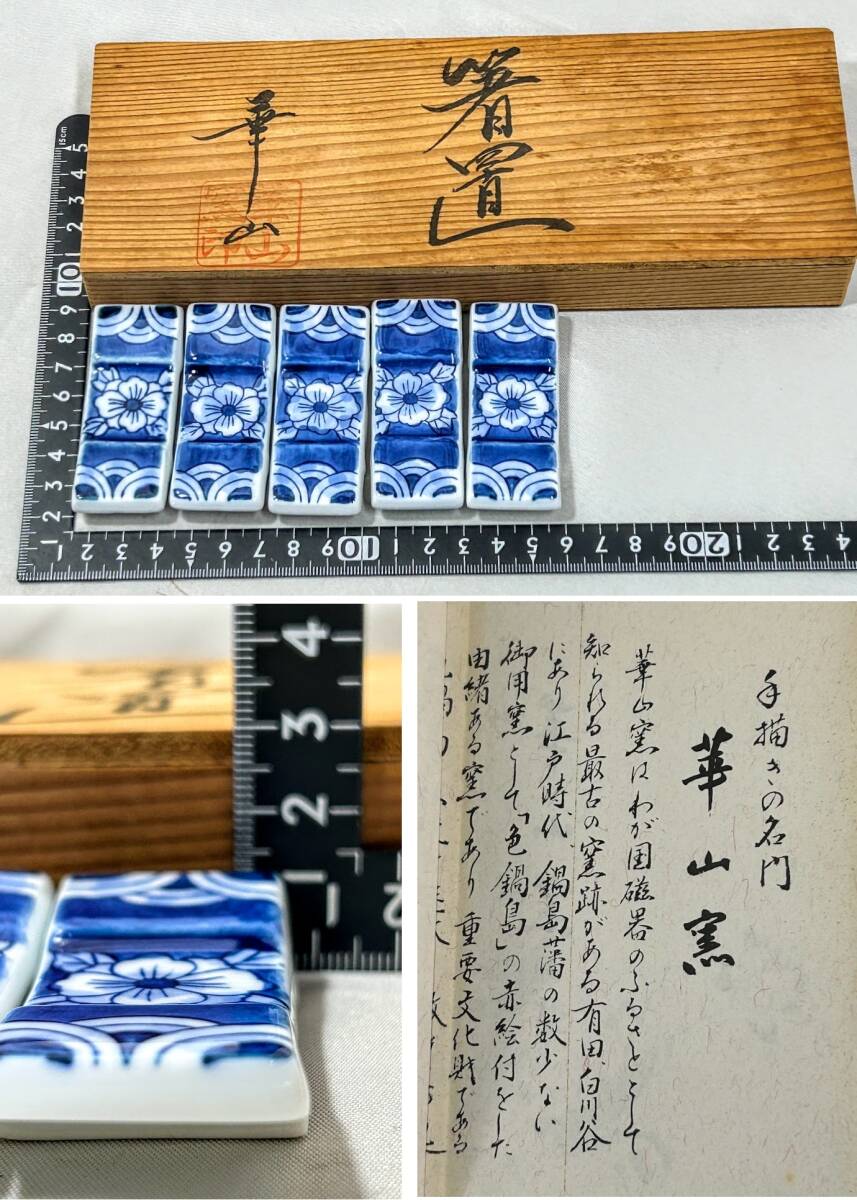 箸置
華山
15cm
5
4
3
2
1
10
9
8
7
6
5
4
3
2
1
2 3 4 5 6 7 8 9 10 1 2 3 4 5 6 7 8 9 20 1 2 3 4
4
3
2
1
2
手描きの名門
華山窯
華山窯はわが国磁器のふるさとして
知られる最古の窯跡がある有田、白川谷
にあり江戸時代鍋島藩の数少ない
御用窯として「色鍋島」の赤絵付をした
由緒ある窯であり重要文化財である